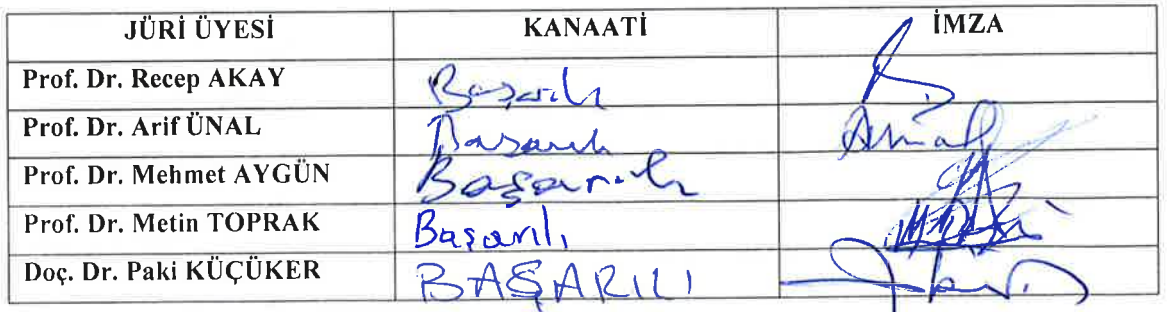 JÜRİ ÜYESİ KANAATİ İMZA
Prof. Dr. Recep AKAY Başarılı
Prof. Dr. Arif ÜNAL Başarılı
Prof. Dr. Mehmet AYGÜN Başarılı
Prof. Dr. Metin TOPRAK Başarılı
Doç. Dr. Paki KÜÇÜKER BAŞARILI